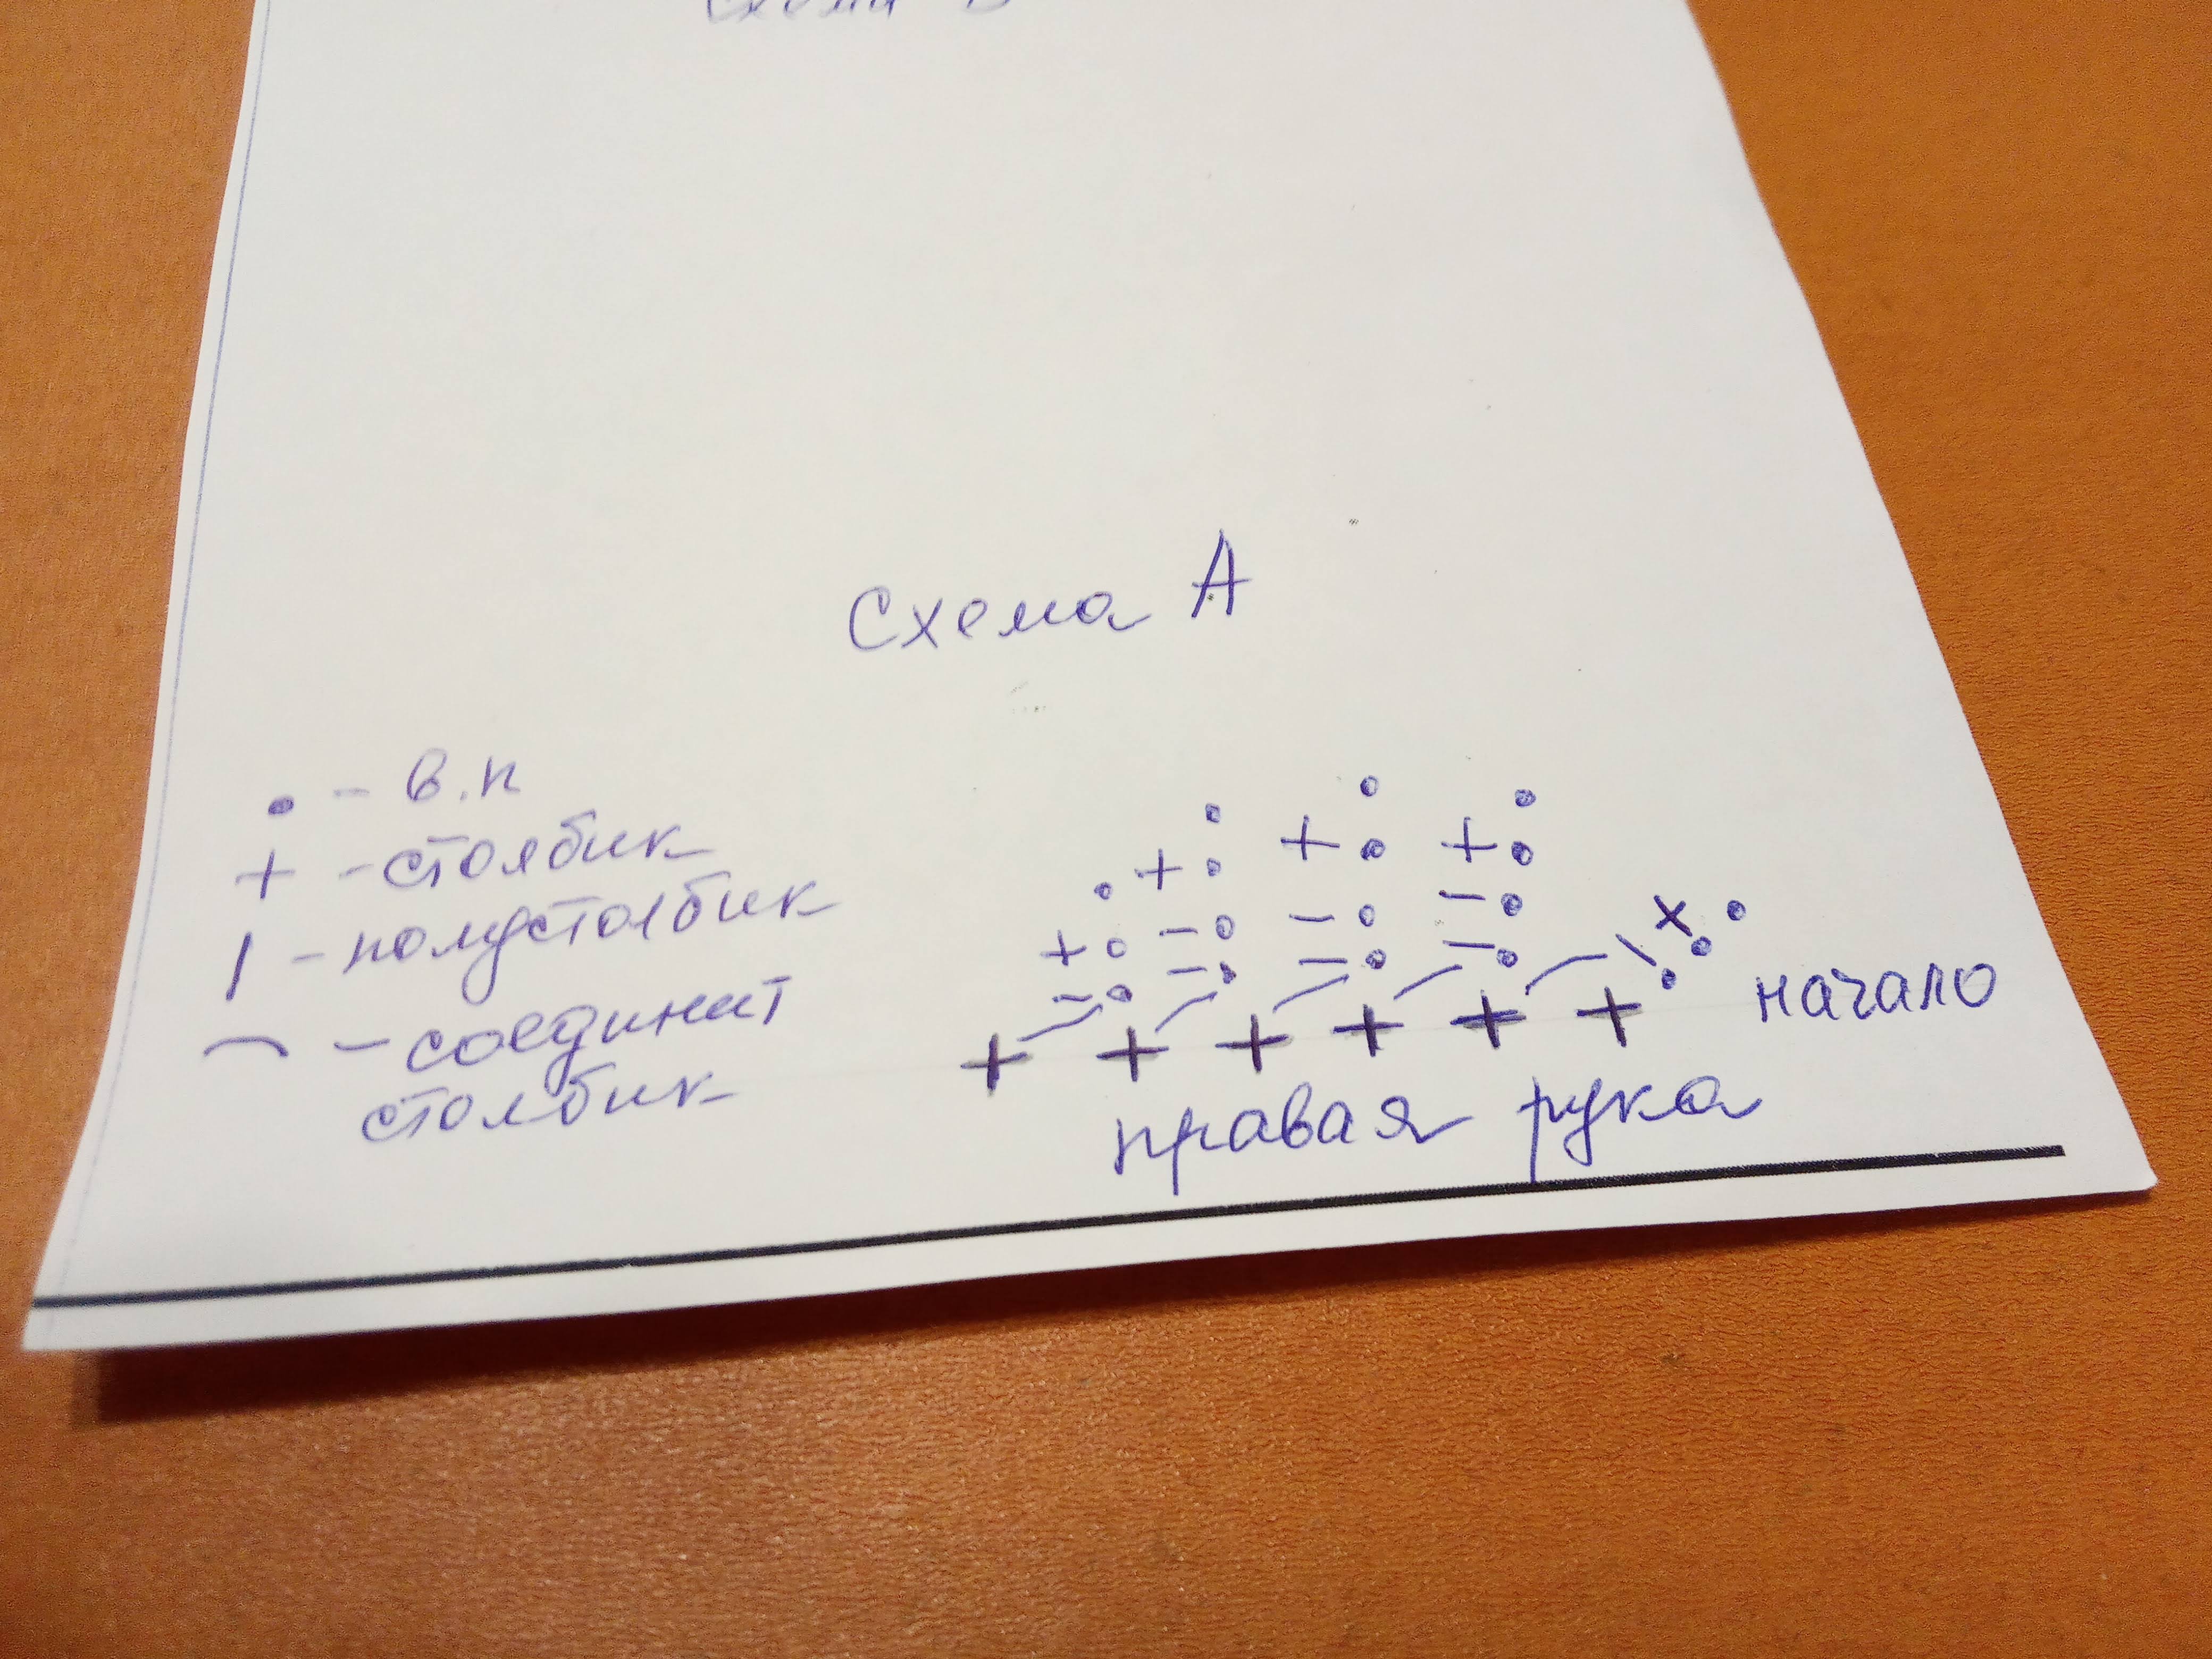 Схема А
• – в.п
+ – столбик
| – полустолбик
⌒ – соединит
столбик
начало
правая рука